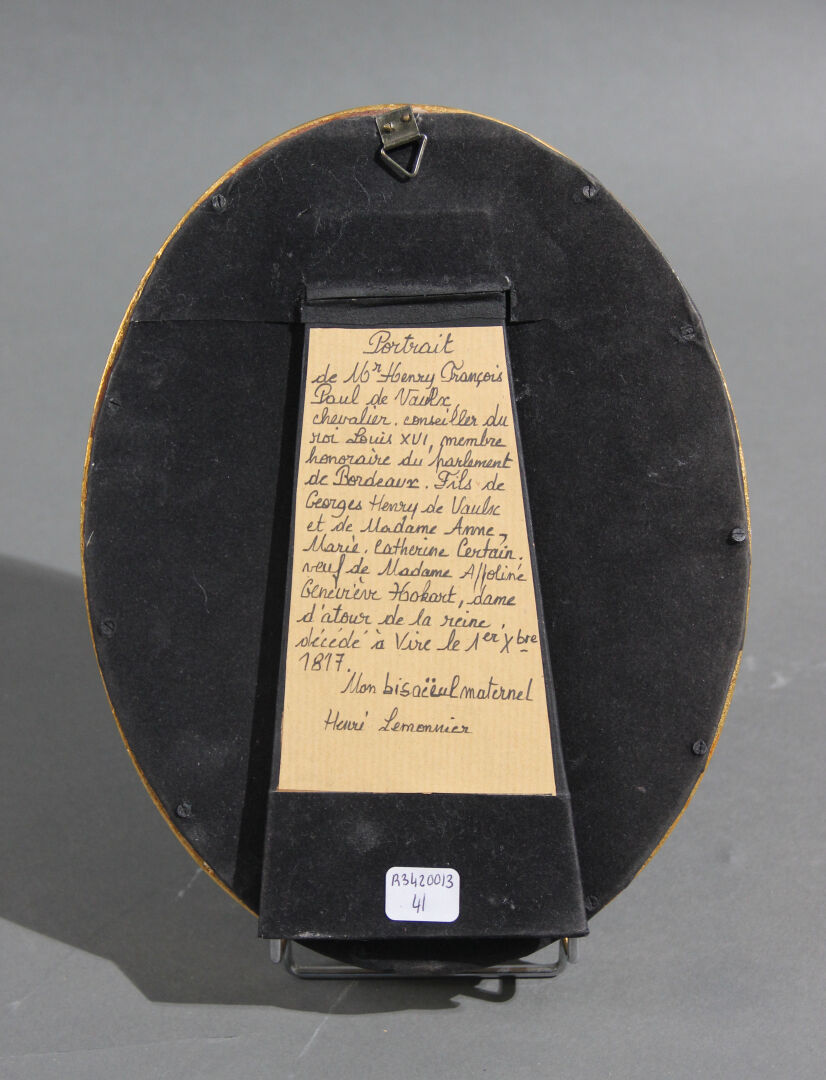 Portrait
de Mr Henry François
Paul de Vaulx,
chevalier, conseiller du
roi Louis XVI, membre
honoraire du parlement
de Bordeaux. Fils de
Georges Henry de Vaulx
et de Madame Anne,
Marie, Catherine Certain.
veuf de Madame Appoline
Geneviève Hokart, dame
d'atour de la reine,
décédé à Vire le 1er Xbre
1817.
Mon bisaïeul maternel
Henri Lemonnier
R3420013
41